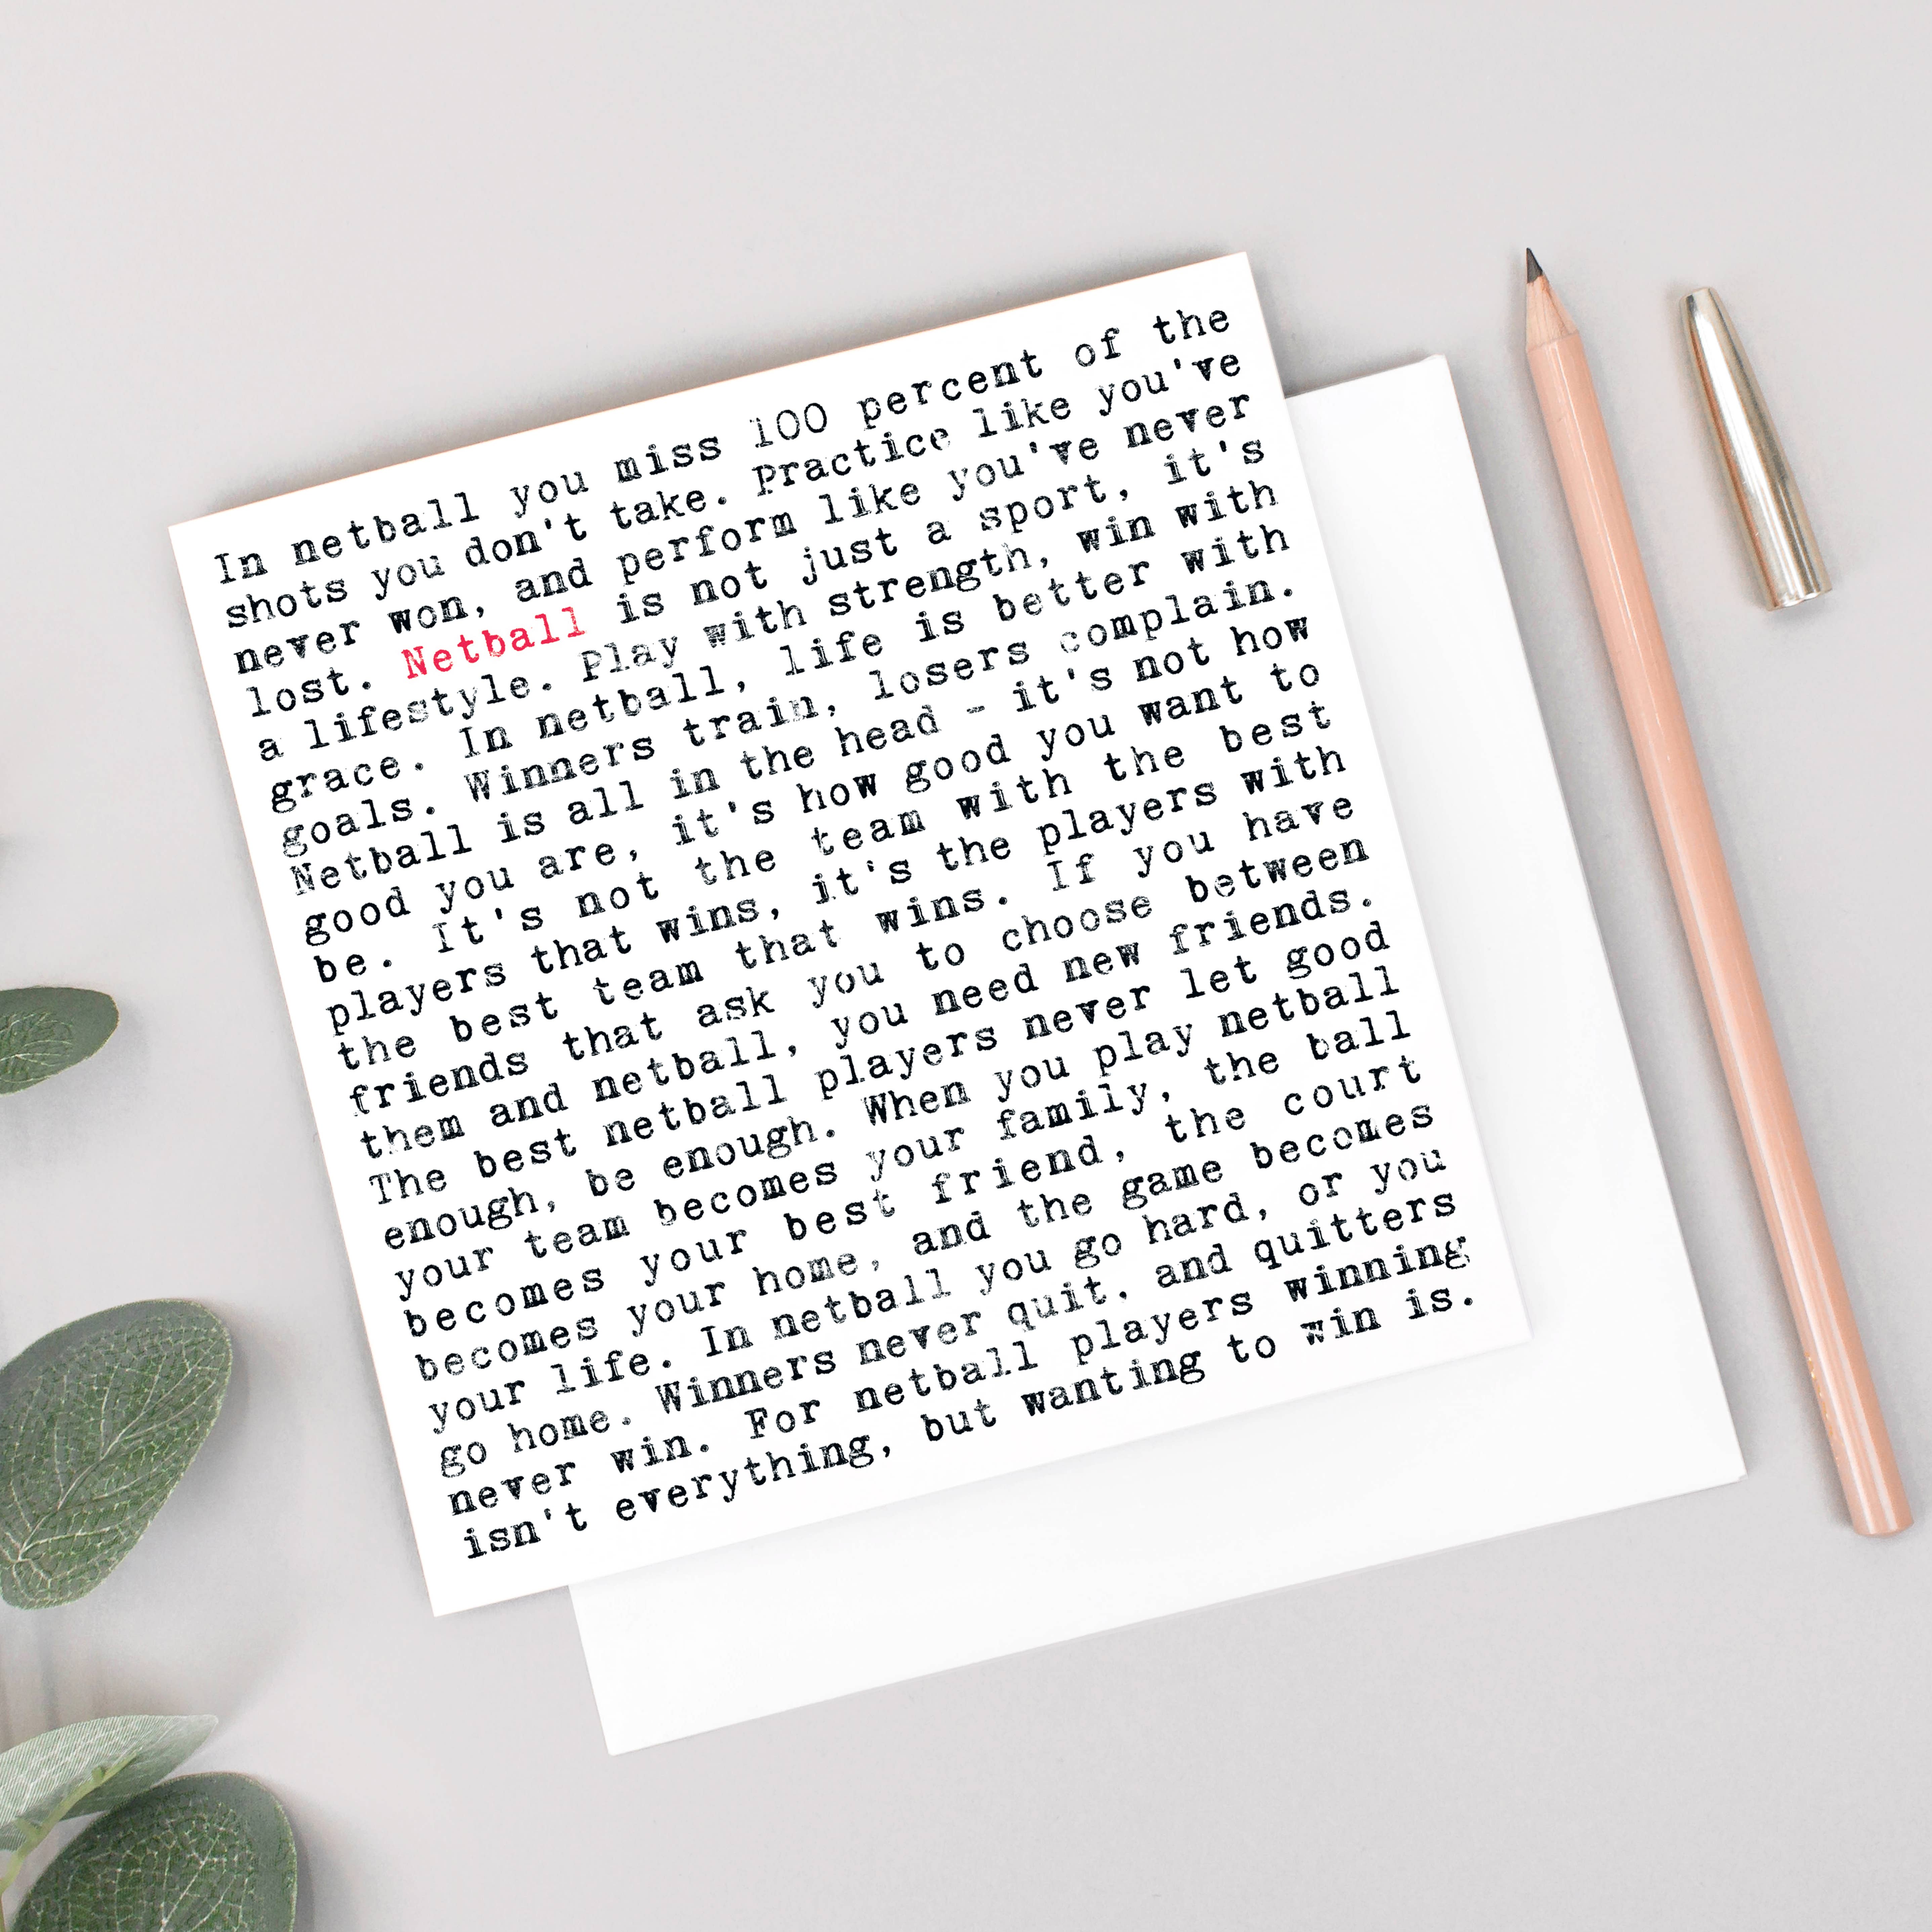 In netball you miss 100 percent of the
shots you don't take. Practice like you've
never won, and perform like you've never
lost. Netball is not just a sport, it's
a lifestyle. Play with strength, win with
grace. In netball, life is better with
goals. Winners train, losers complain.
Netball is all in the head - it's not how
good you are, it's how good you want to
be. It's not the team with the best
players that wins, it's the players with
the best team that wins. If you have
friends that ask you to choose between
them and netball, you need new friends.
The best netball players never let good
enough, be enough. When you play netball
your team becomes your family, the ball
becomes your best friend, the court
becomes your home, and the game becomes
your life. In netball you go hard, or you
go home. Winners never quit, and quitters
never win. For netball players winning
isn't everything, but wanting to win is.